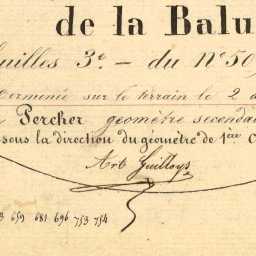 de la Balu
uilles 3e. — du No 50
Terminée sur le terrain le 2
Percher géomètre secondai
sous la direction du géomètre de 1ère C
Art Guilloys
659 681 696 753 754